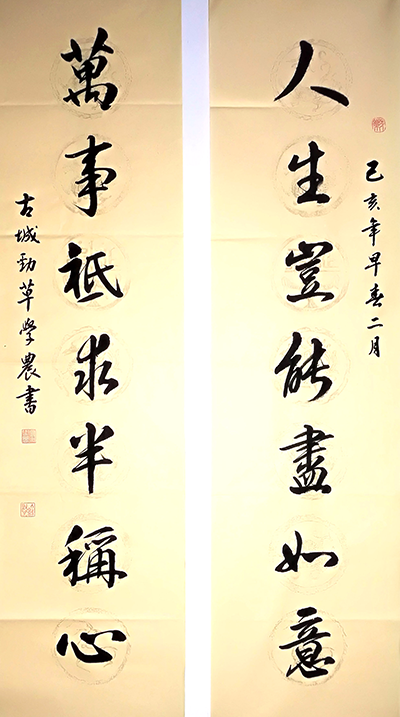 己亥年早春二月
人生豈能盡如意
萬事祗求半稱心
古城勁草學農書